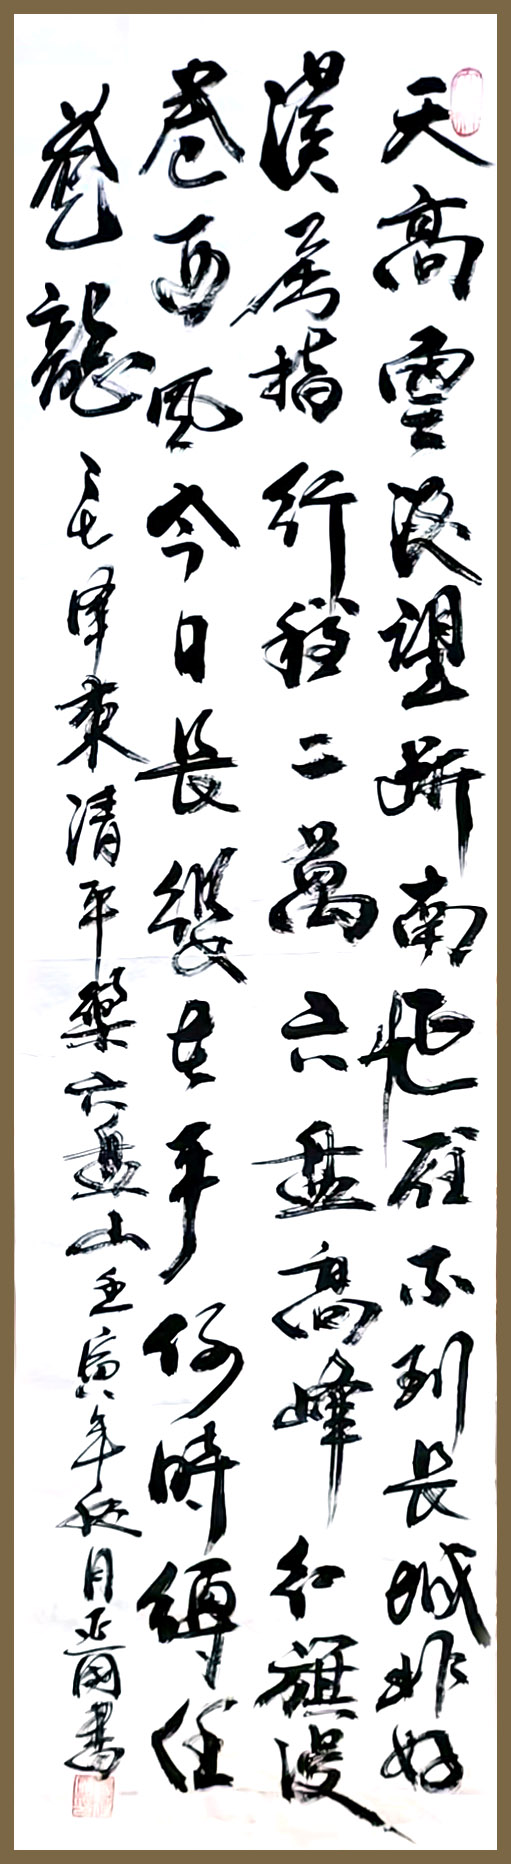 天高雲淡望斷南飛雁不到長城非好
漢屈指行程二萬六盘高峰紅旗漫
卷西風今日長纓在手何時縛住
蒼龍 毛澤東清平樂六盘山壬寅年秋月書